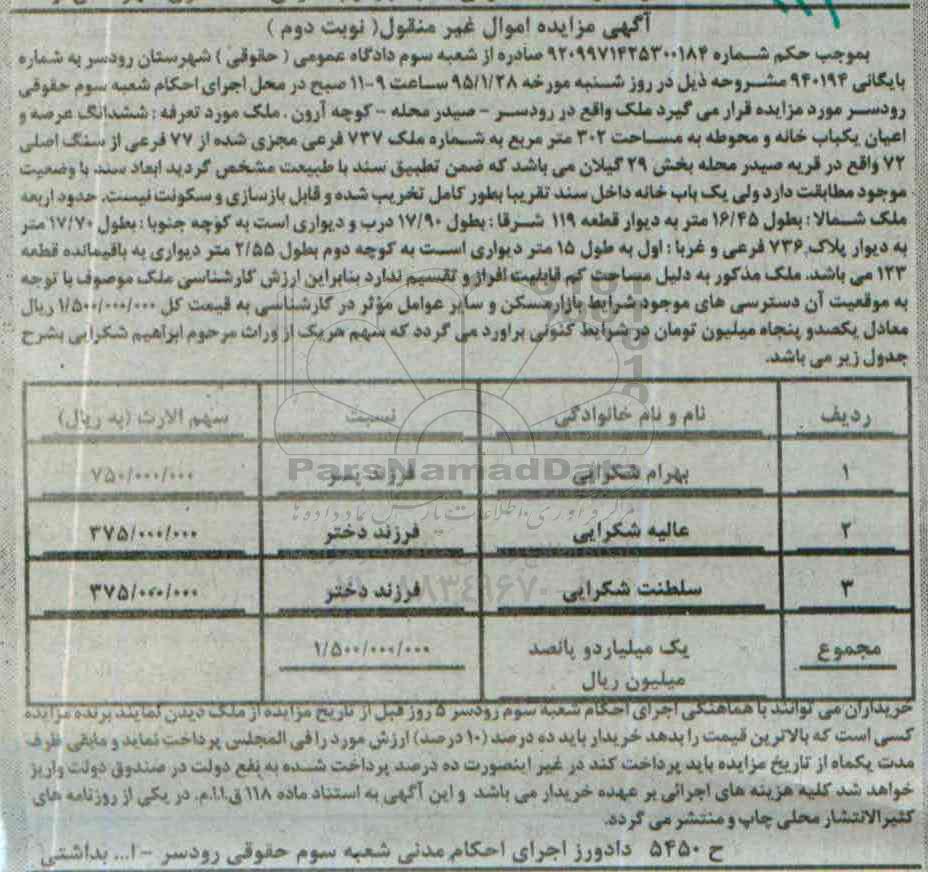 آگهی مزایده اموال غیر منقول( نوبت دوم )
بموجب حکم شماره ۹۲۰۹۹۷۱۴۲۵۳۰۰۱۸۴ صادره از شعبه سوم دادگاه عمومی ( حقوقی ) شهرستان رودسر به شماره
بایگانی ۹۴۰۱۹۴ مشروحه ذیل در روز شنبه مورخه ۹۵/۱/۲۸ ساعت ۹-۱۱ صبح در محل اجرای احکام شعبه سوم حقوقی
رودسر مورد مزایده قرار می گیرد ملک واقع در رودسر - صیدر محله - کوچه آرون . ملک مورد تعرفه : ششدانگ عرصه و
اعیان یکباب خانه و محوطه به مساحت ۳۰۲ متر مربع به شماره ملک ۷۳۷ فرعی مجزی شده از ۷۷ فرعی از سنگ اصلی
۷۲ واقع در قریه صیدر محله بخش ۲۹ گیلان می باشد که ضمن تطبیق سند با طبیعت مشخص گردید ابعاد سند با وضعیت
موجود مطابقت دارد ولی یک باب خانه داخل سند تقریبا بطور کامل تخریب شده و قابل بازسازی و سکونت نیست. حدود اربعه
ملک شمالا : بطول ۱۶/۴۵ متر به دیوار قطعه ۱۱۹ شرقا : بطول ۱۷/۹۰ درب و دیواری است به کوچه جنوبا : بطول ۱۷/۷۰ متر
به دیوار پلاک ۷۳۶ فرعی و غربا : اول به طول ۱۵ متر دیواری است به کوچه دوم بطول ۲/۵۵ متر دیواری به باقیمانده قطعه
۱۲۳ می باشد. ملک مذکور به دلیل مساحت کم قابلیت افراز و تقسیم ندارد بنابراین ارزش کارشناسی ملک موصوف با توجه
به موقعیت آن دسترسی های موجود شرایط بازار مسکن و سایر عوامل مؤثر در کارشناسی به قیمت کل ۱/۵۰۰/۰۰۰/۰۰۰ ریال
معادل یکصدو پنجاه میلیون تومان در شرایط کنونی براورد می گردد که سهم هریک از وراث مرحوم ابراهیم شکرایی بشرح
جدول زیر می باشد.
ردیف نام و نام خانوادگی نسبت سهم الارث (به ریال)
۱ بهرام شکرایی فرزند پسر ۷۵۰/۰۰۰/۰۰۰
ParsNamadData
۲ عالیه شکرایی فرزند دختر ۳۷۵/۰۰۰/۰۰۰
۳ سلطنت شکرایی فرزند دختر ۳۷۵/۰۰۰/۰۰۰
مجموع یک میلیاردو پانصد ۱/۵۰۰/۰۰۰/۰۰۰
میلیون ریال
خریداران می توانند با هماهنگی اجرای احکام شعبه سوم رودسر ۵ روز قبل از تاریخ مزایده از ملک دیدن نمایند برنده مزایده
کسی است که بالاترین قیمت را بدهد خریدار باید ده درصد (۱۰ درصد) ارزش مورد را فی المجلس پرداخت نماید و مابقی ظرف
مدت یکماه از تاریخ مزایده باید پرداخت کند در غیر اینصورت ده درصد پرداخت شده به نفع دولت در صندوق دولت واریز
خواهد شد کلیه هزینه های اجرائی بر عهده خریدار می باشد و این آگهی به استناد ماده ۱۱۸ ق.ا.ا.م. در یکی از روزنامه های
کثیرالانتشار محلی چاپ و منتشر می گردد.
ح ۵۴۵۰ دادورز اجرای احکام مدنی شعبه سوم حقوقی رودسر - ا... بداشتی